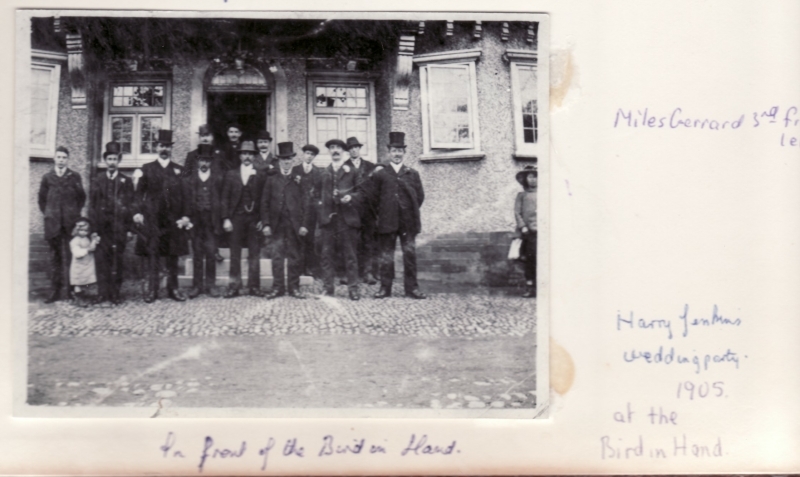 Miles Gerrard 3rd fr
le
Harry Jenkins
wedding party.
1905.
at the
Bird in Hand.
In front of the Bird in Hand.